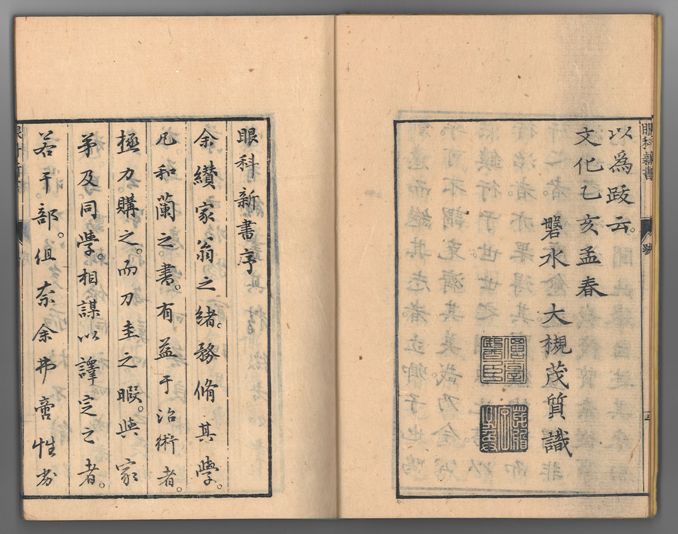 以爲跋云。
文化乙亥孟春
磐水大槻茂質識
眼科新書序
余纉家翁之緒。務脩其學。
凡和蘭之書。有益于治術者。
極力購之。而刀圭之暇。與家
弟及同學。相謀以譯定之者。
若干部。但奈余弗啻性
眼科新書